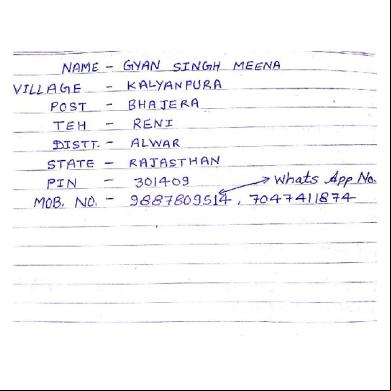 NAME - GYAN SINGH MEENA
VILLAGE - KALYANPURA
POST - BHAJERA
TEH - RENI
DISTT. - ALWAR
STATE - RAJASTHAN
PIN - 301409 Whats App No.
MOB. NO. - 9887809514, 7047411874